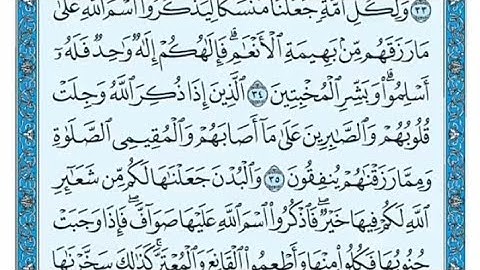 ﴿٣٣﴾ وَلِكُلِّ أُمَّةٍ جَعَلْنَا مَنسَكًا لِّيَذْكُرُوا۟ ٱسْمَ ٱللَّهِ عَلَىٰ
مَا رَزَقَهُم مِّنۢ بَهِيمَةِ ٱلْأَنْعَٰمِ ۗ فَإِلَٰهُكُمْ إِلَٰهٌ وَٰحِدٌ فَلَهُۥٓ
أَسْلِمُوا۟ ۗ وَبَشِّرِ ٱلْمُخْبِتِينَ ﴿٣٤﴾ ٱلَّذِينَ إِذَا ذُكِرَ ٱللَّهُ وَجِلَتْ
قُلُوبُهُمْ وَٱلصَّٰبِرِينَ عَلَىٰ مَآ أَصَابَهُمْ وَٱلْمُقِيمِى ٱلصَّلَوٰةِ
وَمِمَّا رَزَقْنَٰهُمْ يُنفِقُونَ ﴿٣٥﴾ وَٱلْبُدْنَ جَعَلْنَٰهَا لَكُم مِّن شَعَٰٓئِرِ
ٱللَّهِ لَكُمْ فِيهَا خَيْرٌ ۖ فَٱذْكُرُوا۟ ٱسْمَ ٱللَّهِ عَلَيْهَا صَوَآفَّ ۖ فَإِذَا وَجَبَتْ
جُنُوبُهَا فَكُلُوا۟ مِنْهَا وَأَطْعِمُوا۟ ٱلْقَانِعَ وَٱلْمُعْتَرَّ ۚ كَذَٰلِكَ سَخَّرْنَٰهَا